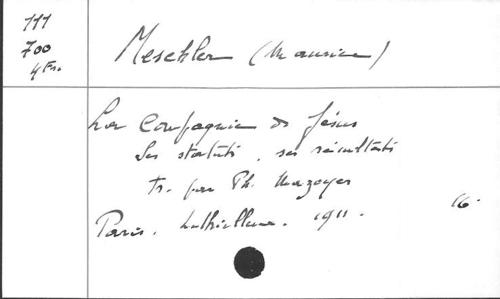 111
700
4 Fr.
Meschler (Maurice)
La Compagnie de Jésus
Ses statuts, ses résultats
Tr. par Ph. Mazoyer
Paris. Lethielleux. 1911. 16.